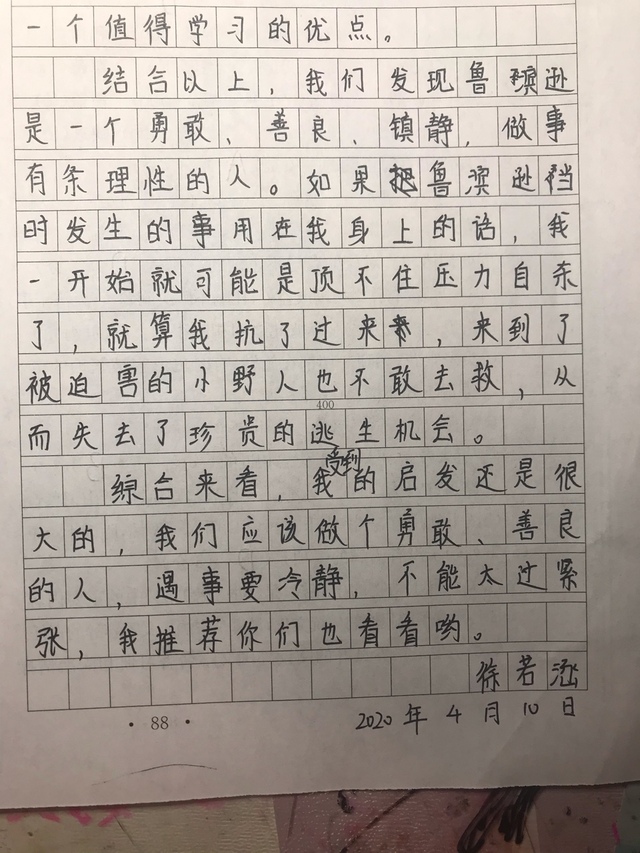 一个值得学习的优点。
结合以上，我们发现鲁滨逊
是一个勇敢、善良、镇静，做事
有条理性的人。如果把鲁滨逊当
时发生的事用在我身上的话，我
一开始就可能是顶不住压力自杀
了，就算我抗了过来，来到了
被迫害的小野人也不敢去救，从
400
而失去了珍贵的逃生机会。
综合来看，我受到的启发还是很
大的，我们应该做个勇敢、善良
的人，遇事要冷静，不能太过紧
张，我推荐你们也看看哟。
徐若涵
·88·
2020年4月10日